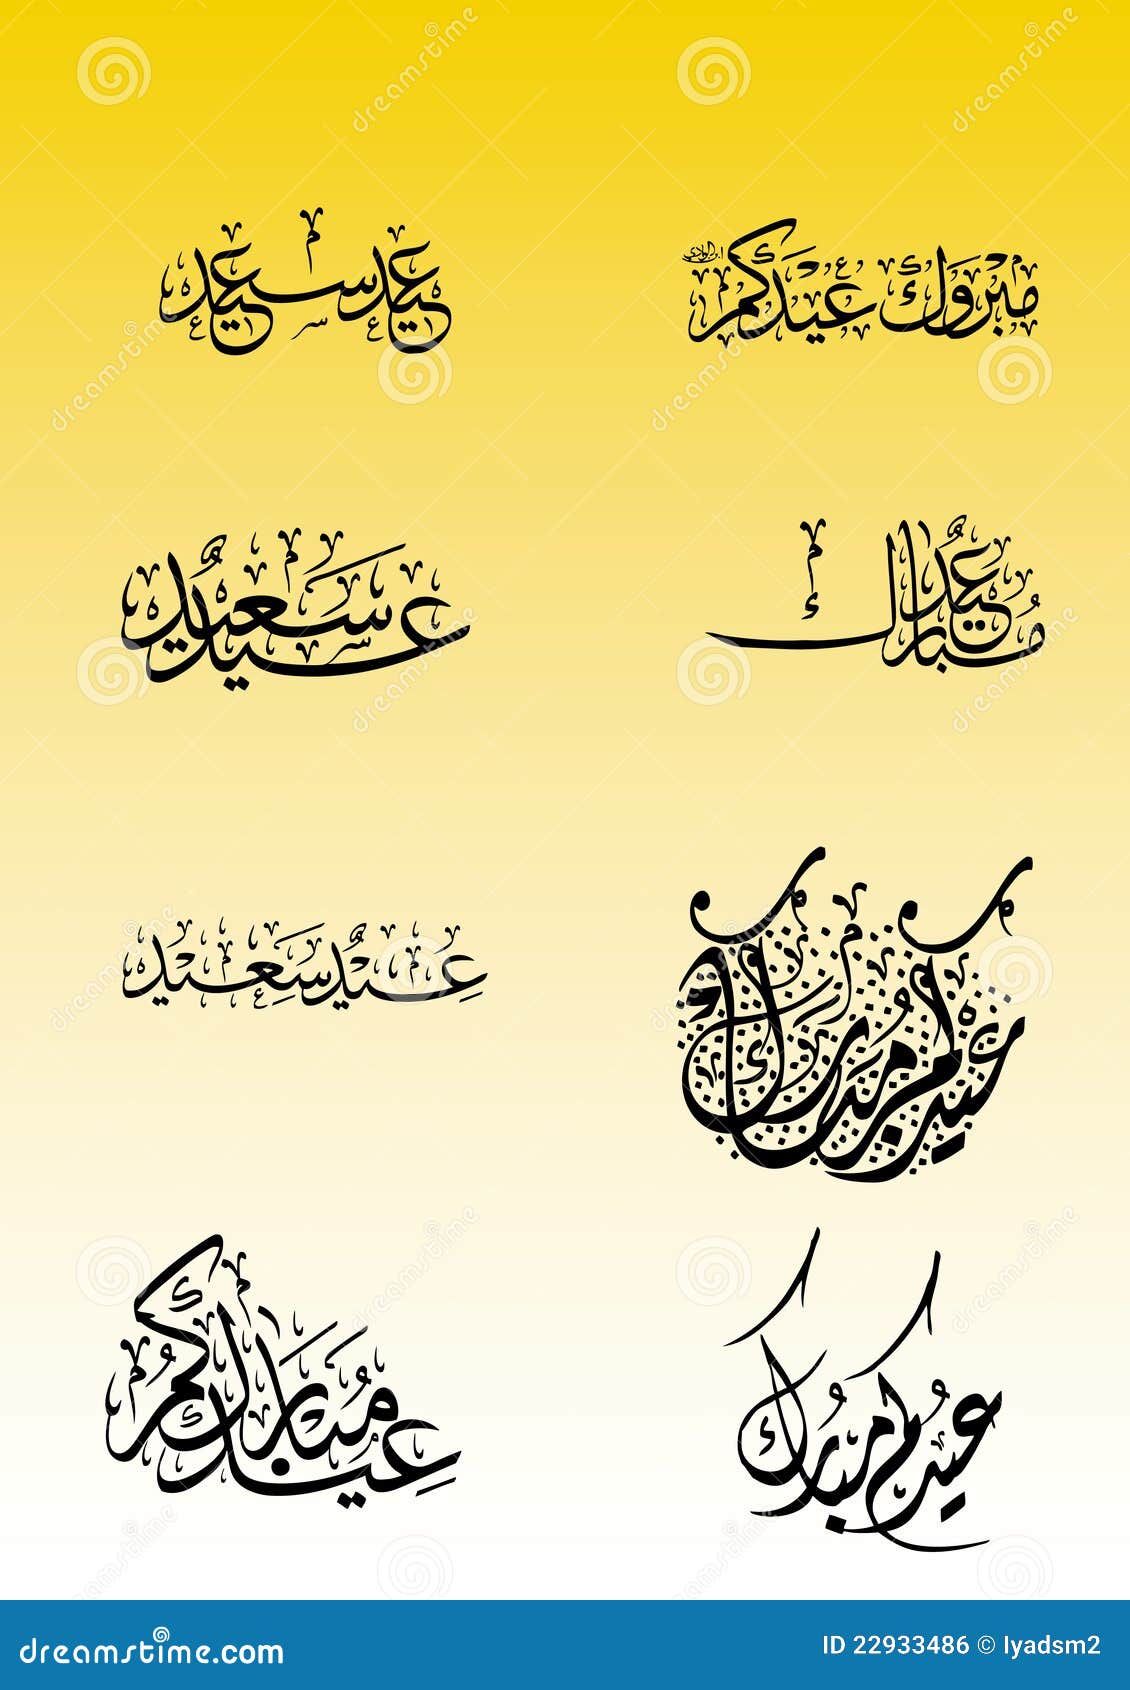 عيد سعيد
مبروك عيدكم
عيد سعيد
عيد مبارك
عيد سعيد
عيدكم مبارك
عيدكم مبارك
عيدكم مبارك
dreamstime.com
ID 22933486 © Iyadsm2